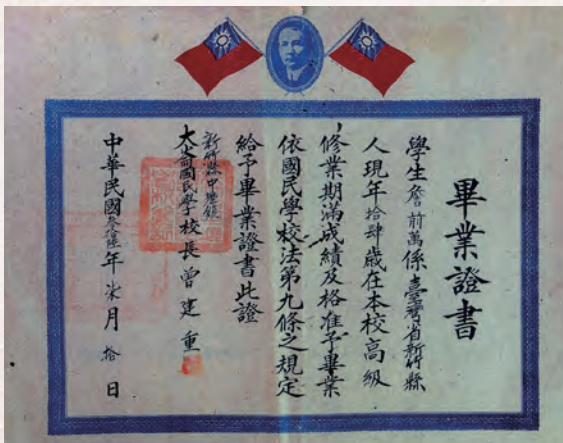 畢業證書
學生詹前萬係臺灣省新竹縣
人現年拾肆歲在本校高級
修業期滿成績及格准予畢業
依國民學校法第九條之規定
給予畢業證書此證
新竹縣中壢鎮
大崙國民學校校長曾建重
中華民國叁拾陸年柒月拾日